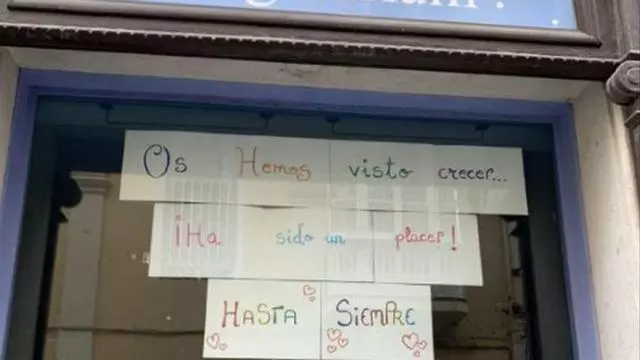 Os Hemos visto crecer...
¡Ha sido un placer!
HASTA SIEMPRE